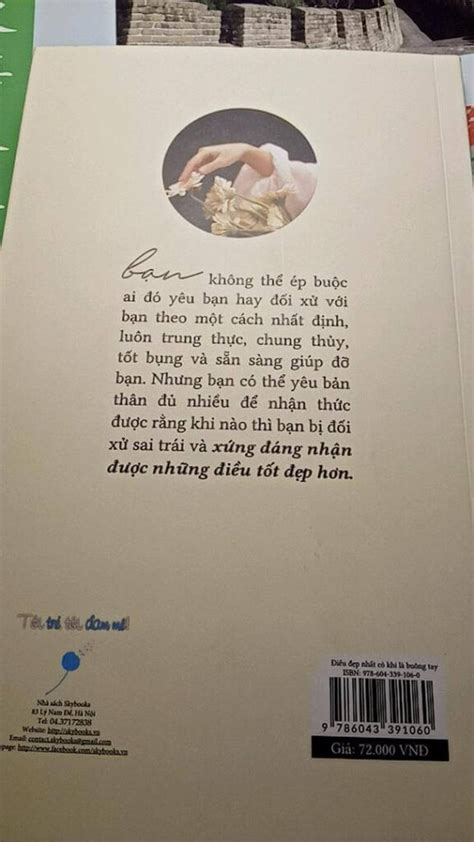 bạn không thể ép buộc
ai đó yêu bạn hay đối xử với
bạn theo một cách nhất định,
luôn trung thực, chung thủy,
tốt bụng và sẵn sàng giúp đỡ
bạn. Nhưng bạn có thể yêu bản
thân đủ nhiều để nhận thức
được rằng khi nào thì bạn bị đối
xử sai trái và xứng đáng nhận
được những điều tốt đẹp hơn.
Tôi trẻ, tôi đam mê!
Nhà sách Skybooks
83 Lý Nam Đế, Hà Nội
Tel: 04.37172838
Website: http://skybooks.vn
Email: contact.skybooks@gmail.com
page: http://www.facebook.com/skybooks.vn
Điều đẹp nhất có khi là buông tay
ISBN: 978-604-339-106-0
9 786043 391060
Giá: 72.000 VNĐ